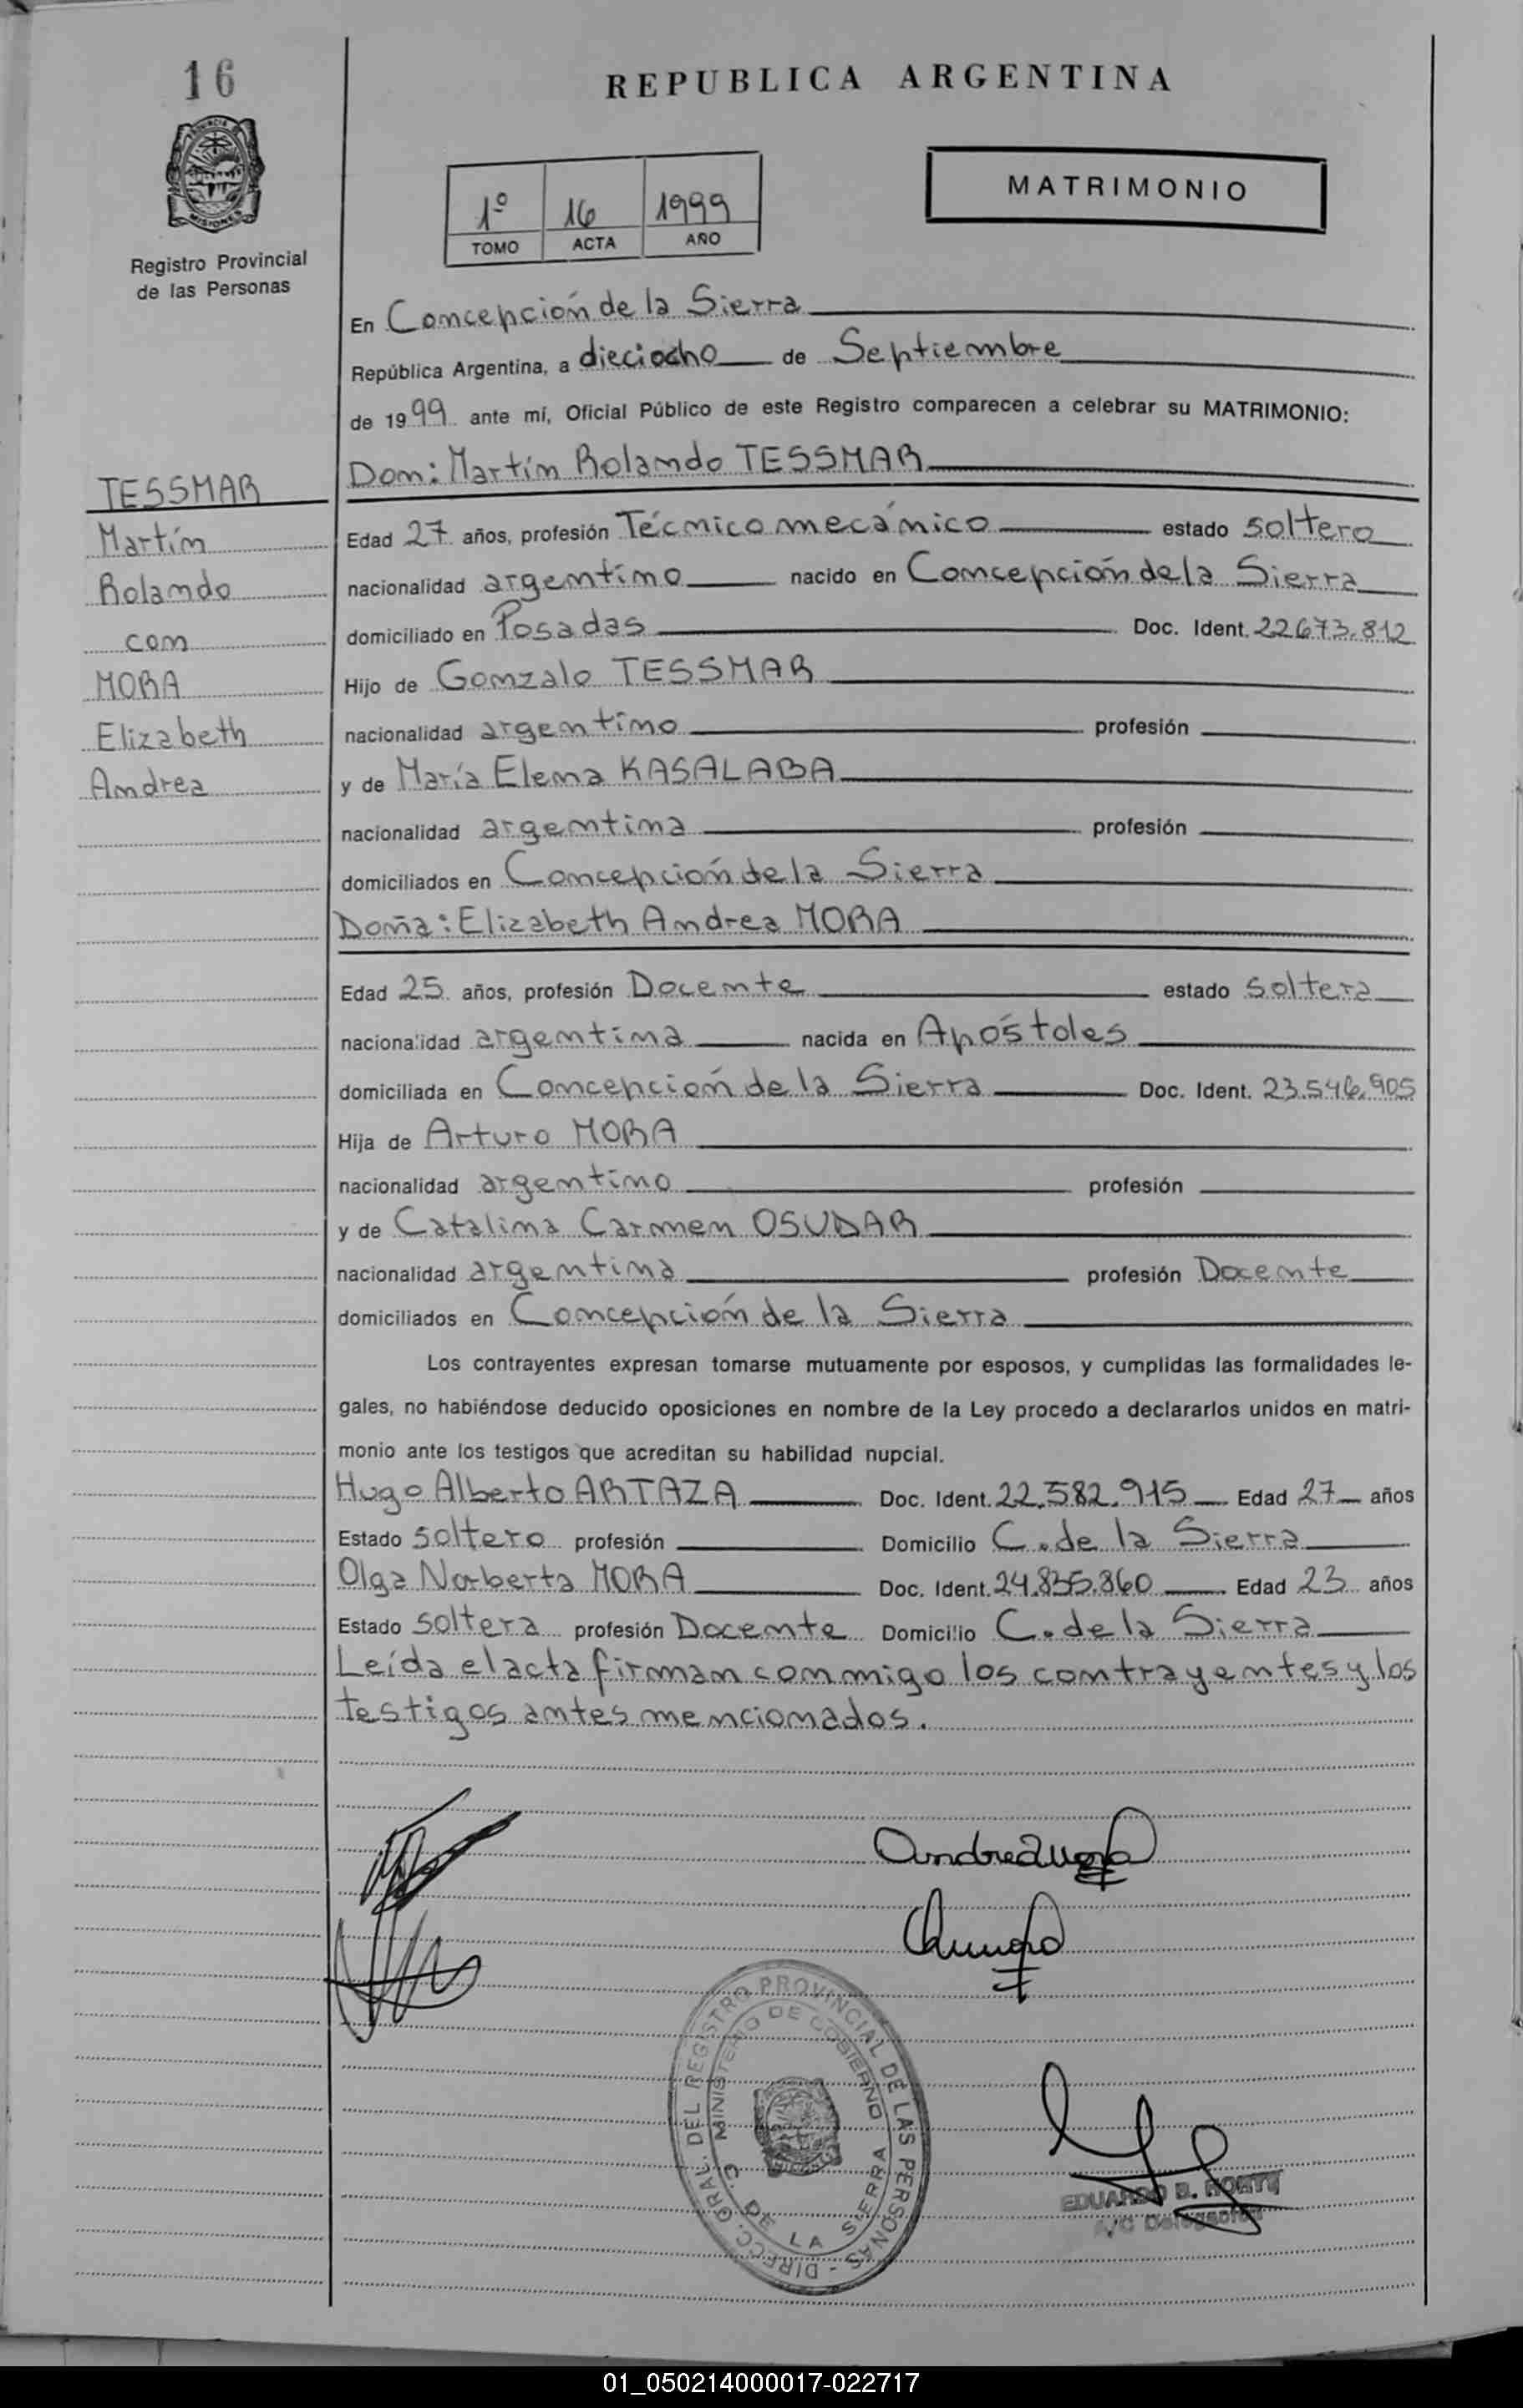 16
REPUBLICA ARGENTINA
MATRIMONIO
1º 16 1999
TOMO ACTA AÑO
Registro Provincial
de las Personas
En Concepción de la Sierra
República Argentina, a dieciocho de Septiembre
de 1999 ante mí, Oficial Público de este Registro comparecen a celebrar su MATRIMONIO:
Don: Martín Rolando TESSMAR
TESSMAR
Martín
Rolando
con
MORA
Elizabeth
Andrea
Edad 27 años, profesión Técnico mecánico estado soltero
nacionalidad argentino nacido en Concepción de la Sierra
domiciliado en Posadas Doc. Ident. 22.673.812
Hijo de Gonzalo TESSMAR
nacionalidad argentino profesión
y de María Elena KASALABA
nacionalidad argentina profesión
domiciliados en Concepción de la Sierra
Doña: Elizabeth Andrea MORA
Edad 25 años, profesión Docente estado soltera
nacionalidad argentina nacida en Apóstoles
domiciliada en Concepción de la Sierra Doc. Ident. 23.546.905
Hija de Arturo MORA
nacionalidad argentino profesión
y de Catalina Carmen OSUDAR
nacionalidad argentina profesión Docente
domiciliados en Concepción de la Sierra
Los contrayentes expresan tomarse mutuamente por esposos, y cumplidas las formalidades le-
gales, no habiéndose deducido oposiciones en nombre de la Ley procedo a declararlos unidos en matri-
monio ante los testigos que acreditan su habilidad nupcial.
Hugo Alberto ARTAZA Doc. Ident. 22.582.915 Edad 27 años
Estado soltero profesión Domicilio C. de la Sierra
Olga Norberta MORA Doc. Ident. 24.835.860 Edad 23 años
Estado soltera profesión Docente Domicilio C. de la Sierra
Leída el acta firman conmigo los contrayentes y los
testigos antes mencionados.
DIRECC. GRAL. DEL REGISTRO PROVINCIAL DE LAS PERSONAS -
MINISTERIO DE GOBIERNO
C. DE LA SIERRA
EDUARDO B.
A/C Delegación
01_050214000017-022717